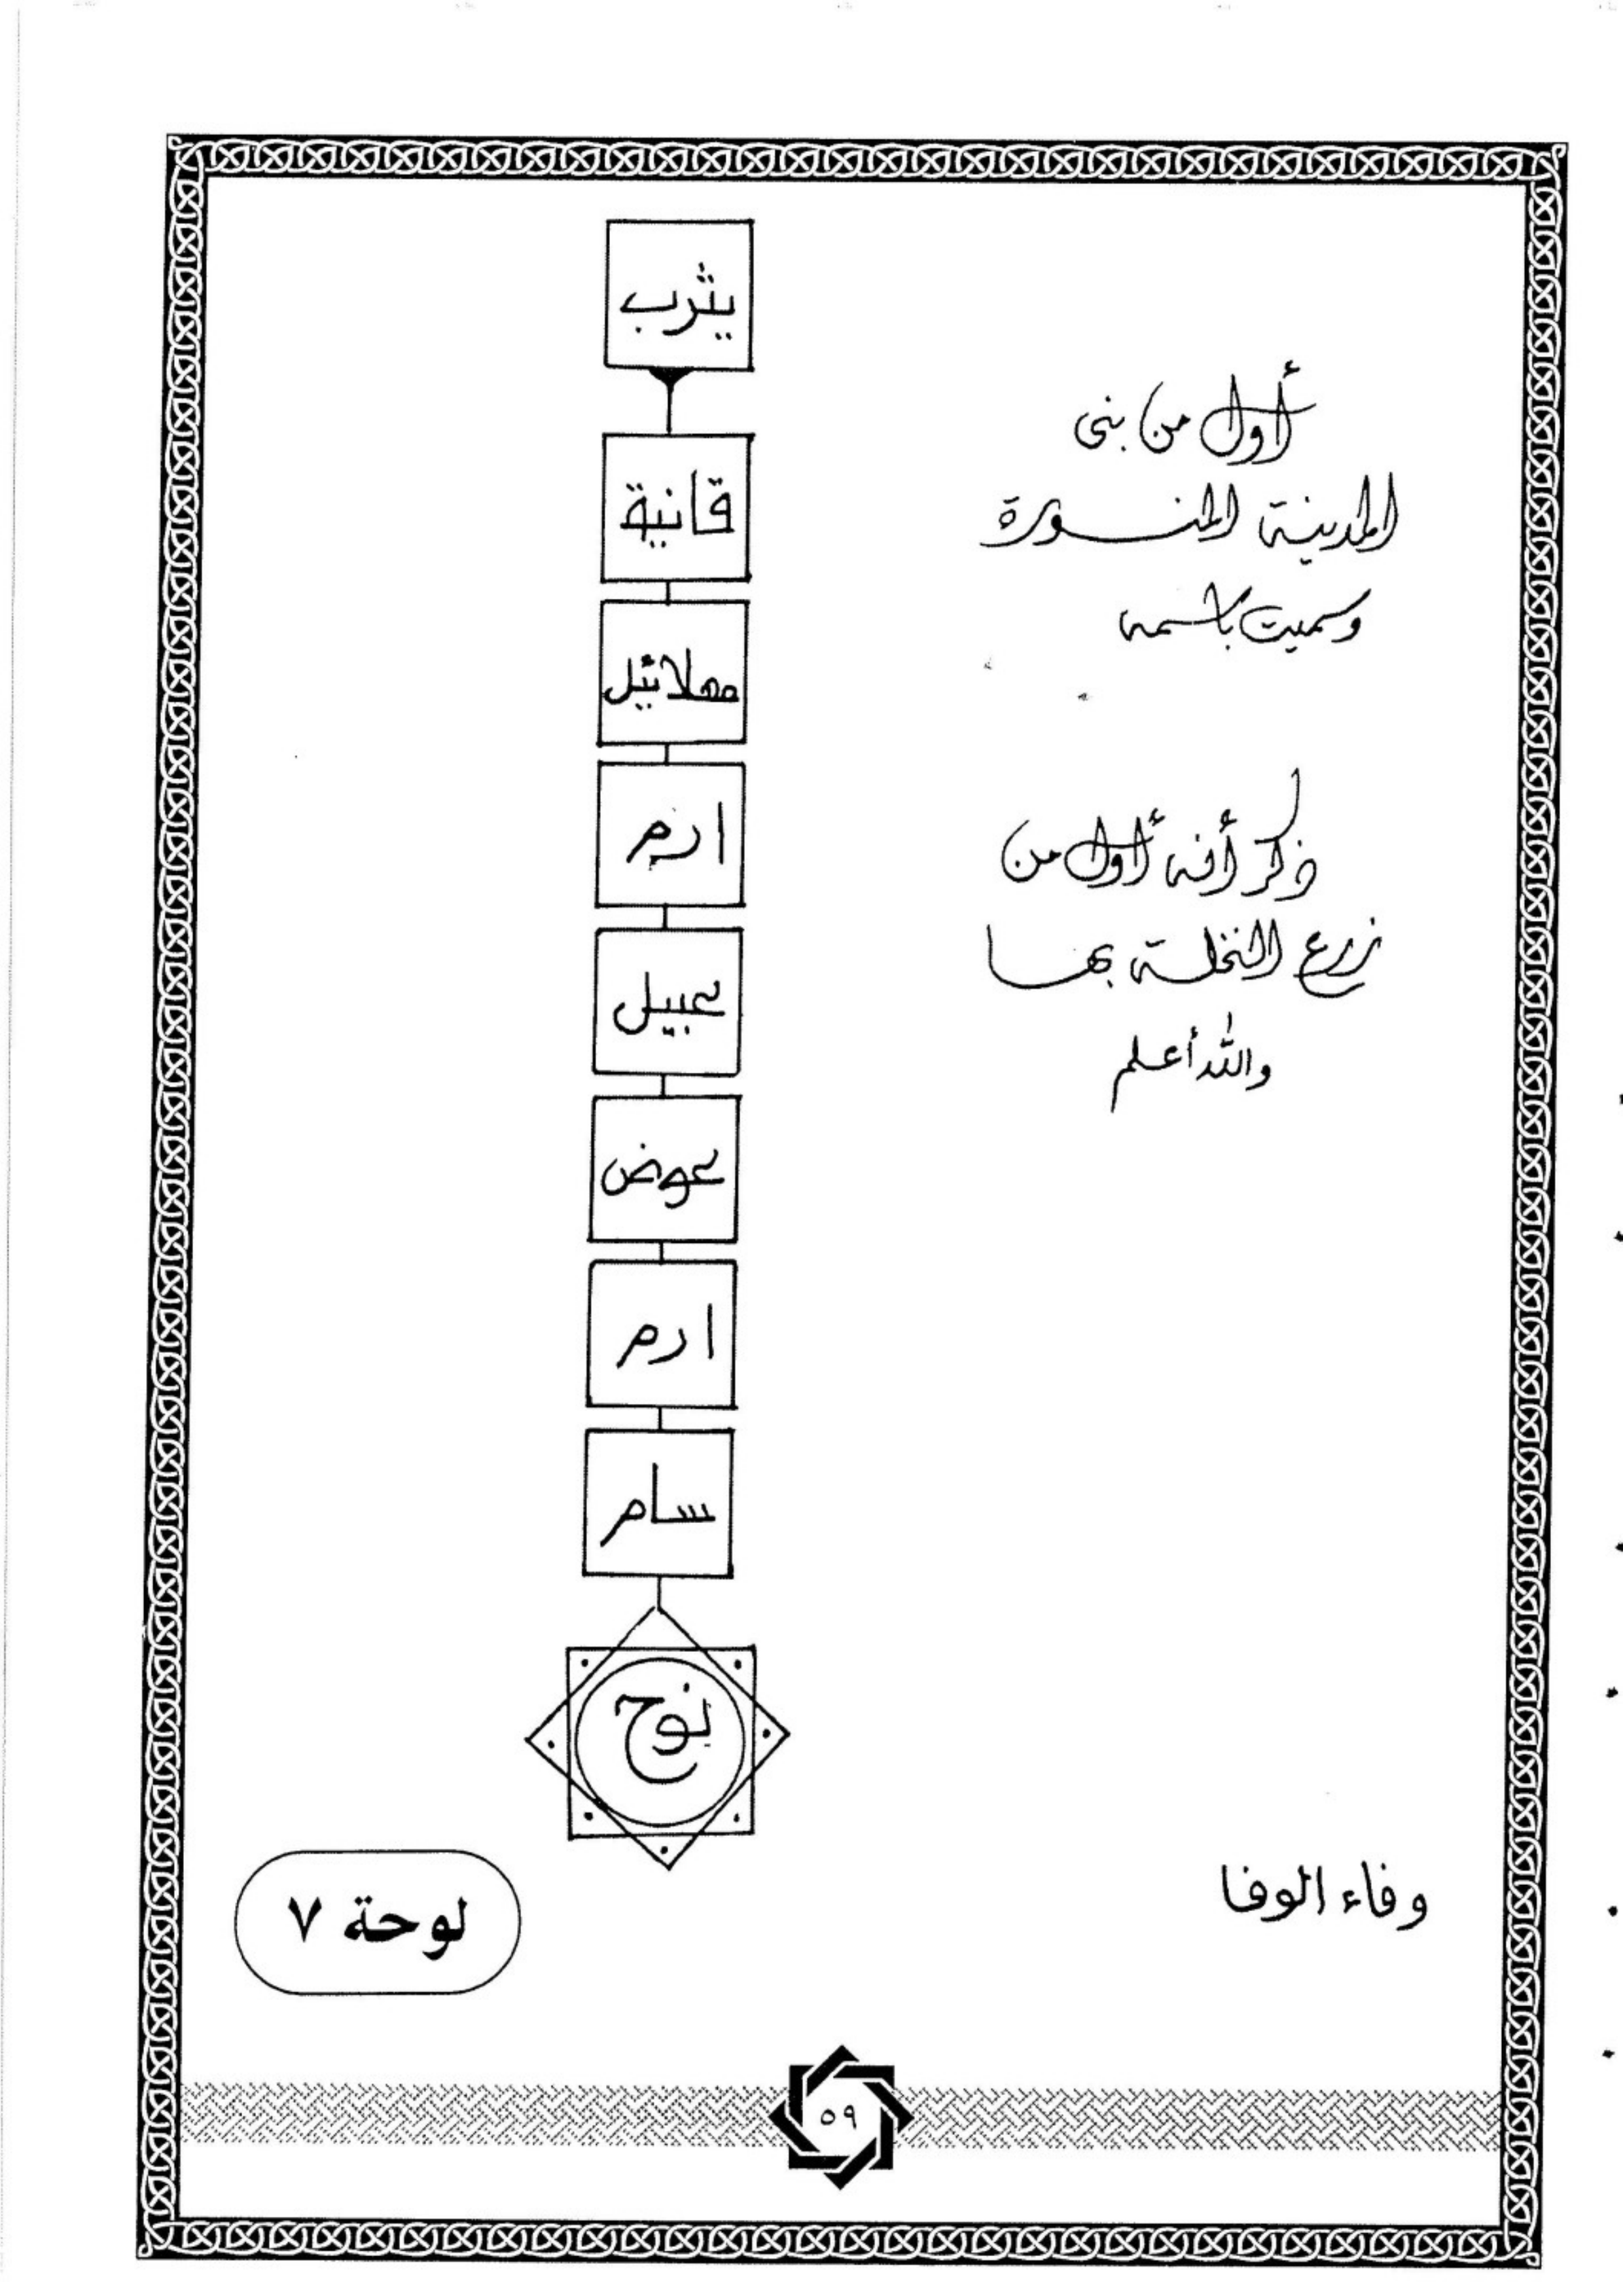 يثرب
قانية
مهلائيل
ارم
عبيل
عوض
ارم
سام
نوح
أول من بنى
المدينة المنورة
وسميت باسمه
ذكر أنه أول من
زرع النخلة بها
والله أعلم
وفاء الوفا
لوحة ٧
٥٩